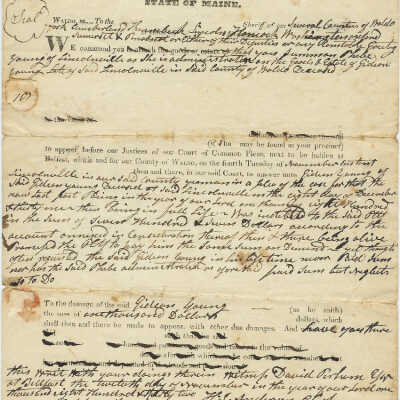 STATE OF MAINE.
Seal
WALDO, ss.—To the Sheriff of our Several Counties of Waldo
York Cumberland Lincoln Hancock Washington Oxford
Somerset & Penobscot or either of their Deputies or any
WE command you to attach the goods or estate of
Young of Lincolnville as She is administratrix on the Goods & Estate of Gideon
Young Late of Said Lincolnville in Said County of Waldo Deceased
to appear before our Justices of our Court of Common Pleas, next to be holden at
Belfast, within and for our County of WALDO, on the fourth Tuesday of November
then and there, in our said Court, to answer unto Gideon Young of
Lincolnville in our Said County yeoman in a plea of the case for that the
Said Gideon Young Deceased at Said Lincolnville on the eighth day of December
now last past in the year of our Lord one thousand eight hundred
& thirty one then being in full Life was indebted to the Said Plff
in the Sum of Seven Hundred Dollars according to the
account annexed in Consideration thereof then & there being alive
promised the Plff to pay him the Same Sum on Demand yet though
often requested the Said Gideon Young in his Life time never Paid Sum
nor has the Said administratrix as aforesaid paid Sum but neglects
So to Do
To the damage of the said Gideon Young (as he saith)
the sum of one thousand Dollars dollars, which
shall then and there be made to appear, with other due damages. And have you there
this Writ with your doings therein Witness David Perham Esqr
at Belfast the twentieth day of November in the year of our Lord one
thousand eight hundred & thirty two